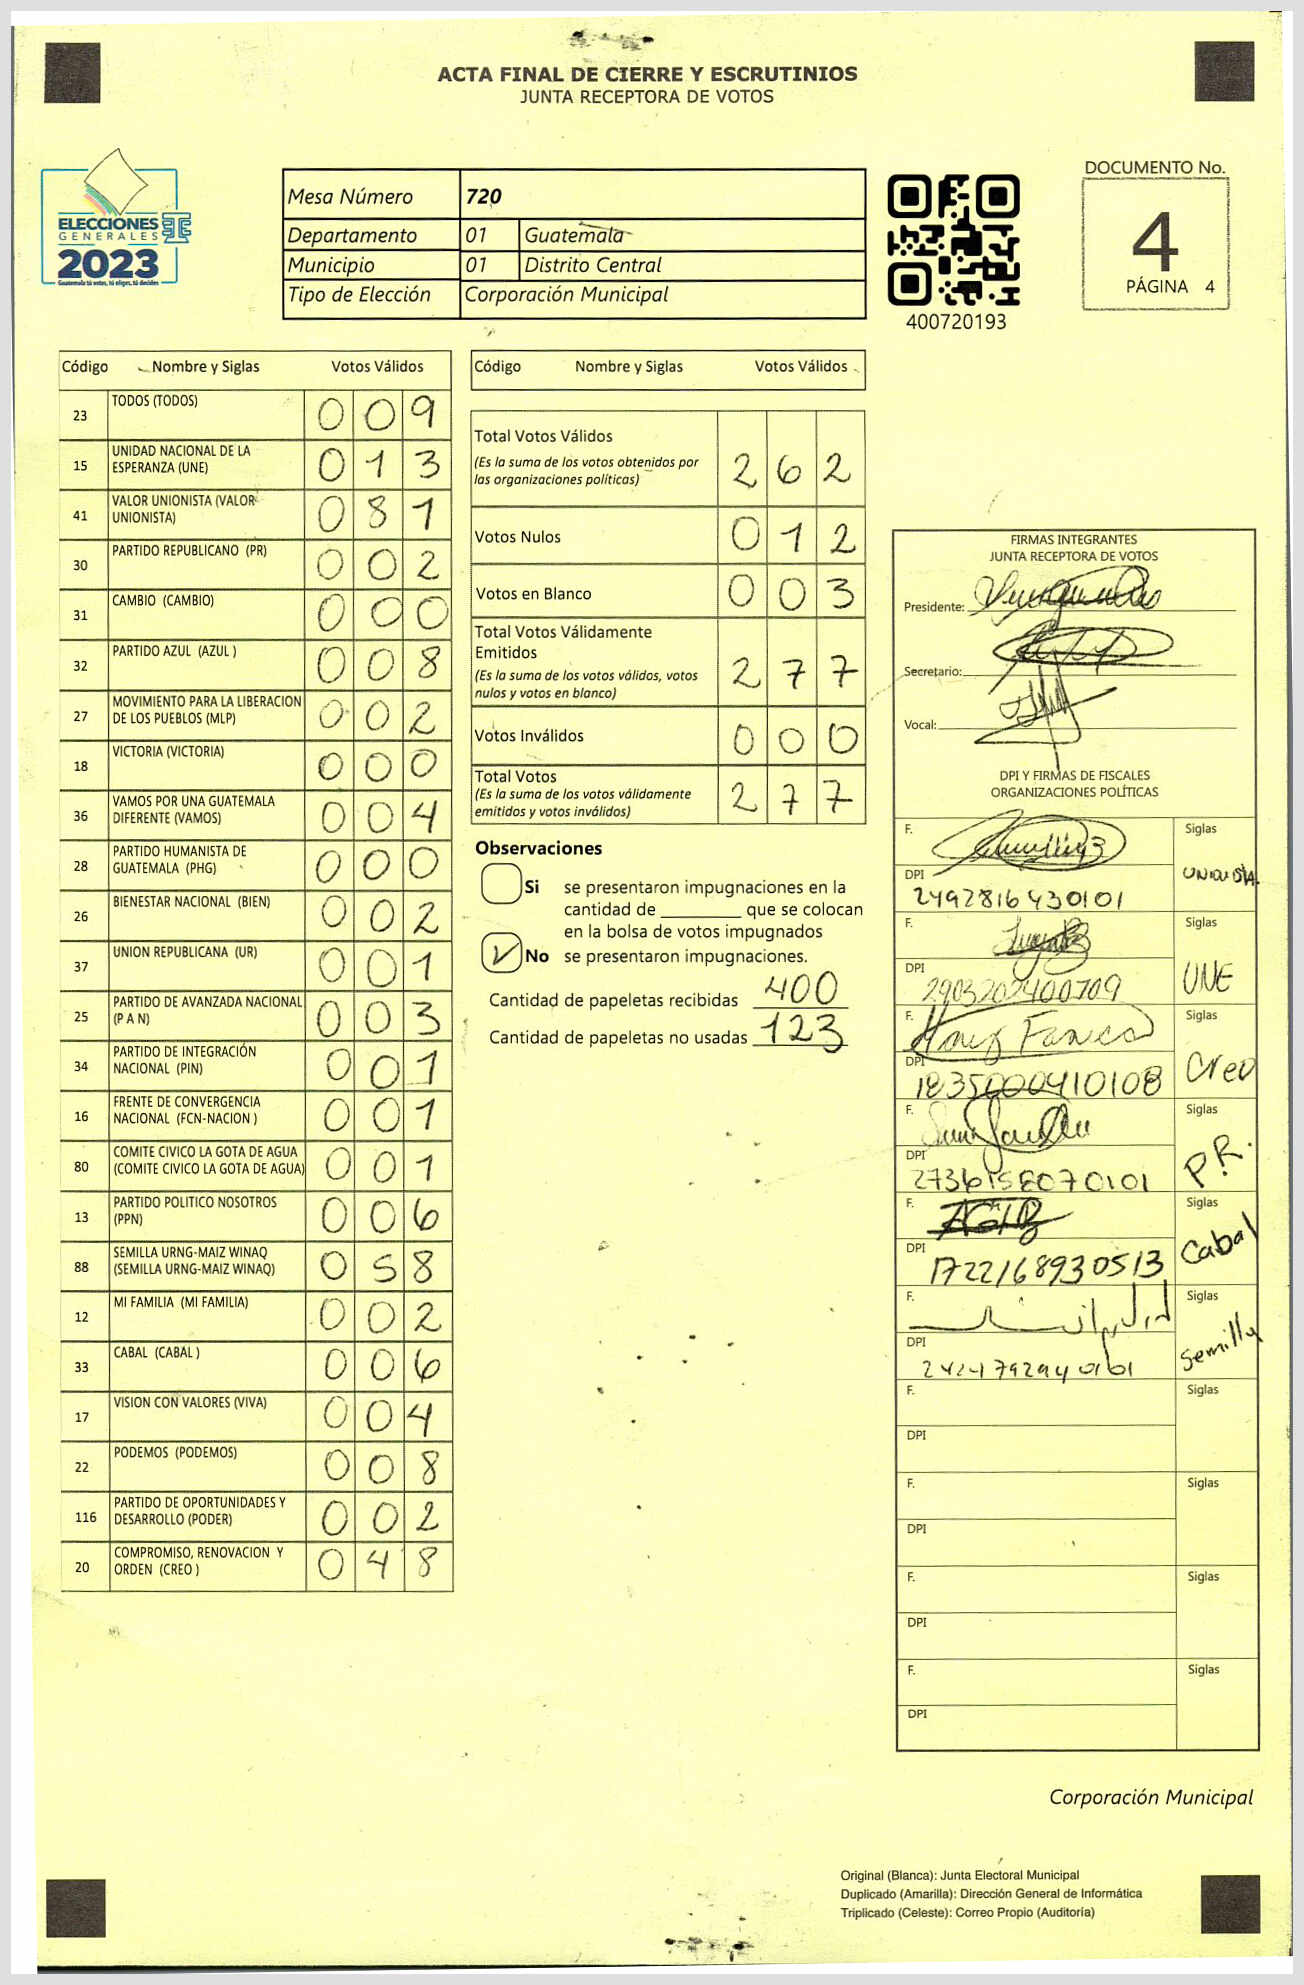 ACTA FINAL DE CIERRE Y ESCRUTINIOS
JUNTA RECEPTORA DE VOTOS
ELECCIONES
GENERALES
2023
Guatemala tú votas, tú eliges, tú decides
Mesa Número 720
Departamento 01 Guatemala
Municipio 01 Distrito Central
Tipo de Elección Corporación Municipal
400720193
DOCUMENTO No.
4
PÁGINA 4
Código Nombre y Siglas Votos Válidos
23 TODOS (TODOS) 0 0 9
15 UNIDAD NACIONAL DE LA ESPERANZA (UNE) 0 1 3
41 VALOR UNIONISTA (VALOR UNIONISTA) 0 8 1
30 PARTIDO REPUBLICANO (PR) 0 0 2
31 CAMBIO (CAMBIO) 0 0 0
32 PARTIDO AZUL (AZUL ) 0 0 8
27 MOVIMIENTO PARA LA LIBERACION DE LOS PUEBLOS (MLP) 0 0 2
18 VICTORIA (VICTORIA) 0 0 0
36 VAMOS POR UNA GUATEMALA DIFERENTE (VAMOS) 0 0 4
28 PARTIDO HUMANISTA DE GUATEMALA (PHG) 0 0 0
26 BIENESTAR NACIONAL (BIEN) 0 0 2
37 UNION REPUBLICANA (UR) 0 0 1
25 PARTIDO DE AVANZADA NACIONAL (P A N) 0 0 3
34 PARTIDO DE INTEGRACIÓN NACIONAL (PIN) 0 0 1
16 FRENTE DE CONVERGENCIA NACIONAL (FCN-NACION ) 0 0 1
80 COMITE CIVICO LA GOTA DE AGUA (COMITE CIVICO LA GOTA DE AGUA) 0 0 1
13 PARTIDO POLITICO NOSOTROS (PPN) 0 0 6
88 SEMILLA URNG-MAIZ WINAQ (SEMILLA URNG-MAIZ WINAQ) 0 5 8
12 MI FAMILIA (MI FAMILIA) 0 0 2
33 CABAL (CABAL ) 0 0 6
17 VISION CON VALORES (VIVA) 0 0 4
22 PODEMOS (PODEMOS) 0 0 8
116 PARTIDO DE OPORTUNIDADES Y DESARROLLO (PODER) 0 0 2
20 COMPROMISO, RENOVACION Y ORDEN (CREO ) 0 4 8
Código Nombre y Siglas Votos Válidos
Total Votos Válidos
(Es la suma de los votos obtenidos por
las organizaciones políticas) 2 6 2
Votos Nulos 0 1 2
Votos en Blanco 0 0 3
Total Votos Válidamente
Emitidos
(Es la suma de los votos válidos, votos
nulos y votos en blanco) 2 7 7
Votos Inválidos 0 0 0
Total Votos
(Es la suma de los votos válidamente
emitidos y votos inválidos) 2 7 7
Observaciones
Si se presentaron impugnaciones en la
cantidad de ________ que se colocan
en la bolsa de votos impugnados
No se presentaron impugnaciones.
Cantidad de papeletas recibidas 400
Cantidad de papeletas no usadas 123
FIRMAS INTEGRANTES
JUNTA RECEPTORA DE VOTOS
Presidente:
Secretario:
Vocal:
DPI Y FIRMAS DE FISCALES
ORGANIZACIONES POLÍTICAS
F. Siglas
DPI 2492816430101 UNIONISTA.
F. Siglas
DPI 2903202400709 UNE
F. Siglas
DPI 1835000410108 Creo
F. Siglas
DPI 2736158070101 P.R.
F. Siglas
DPI 1722168930513 Cabal
F. Siglas
DPI 2424792940101 Semilla
F. Siglas
DPI
F. Siglas
DPI
F. Siglas
DPI
F. Siglas
DPI
Corporación Municipal
Original (Blanca): Junta Electoral Municipal
Duplicado (Amarilla): Dirección General de Informática
Triplicado (Celeste): Correo Propio (Auditoría)